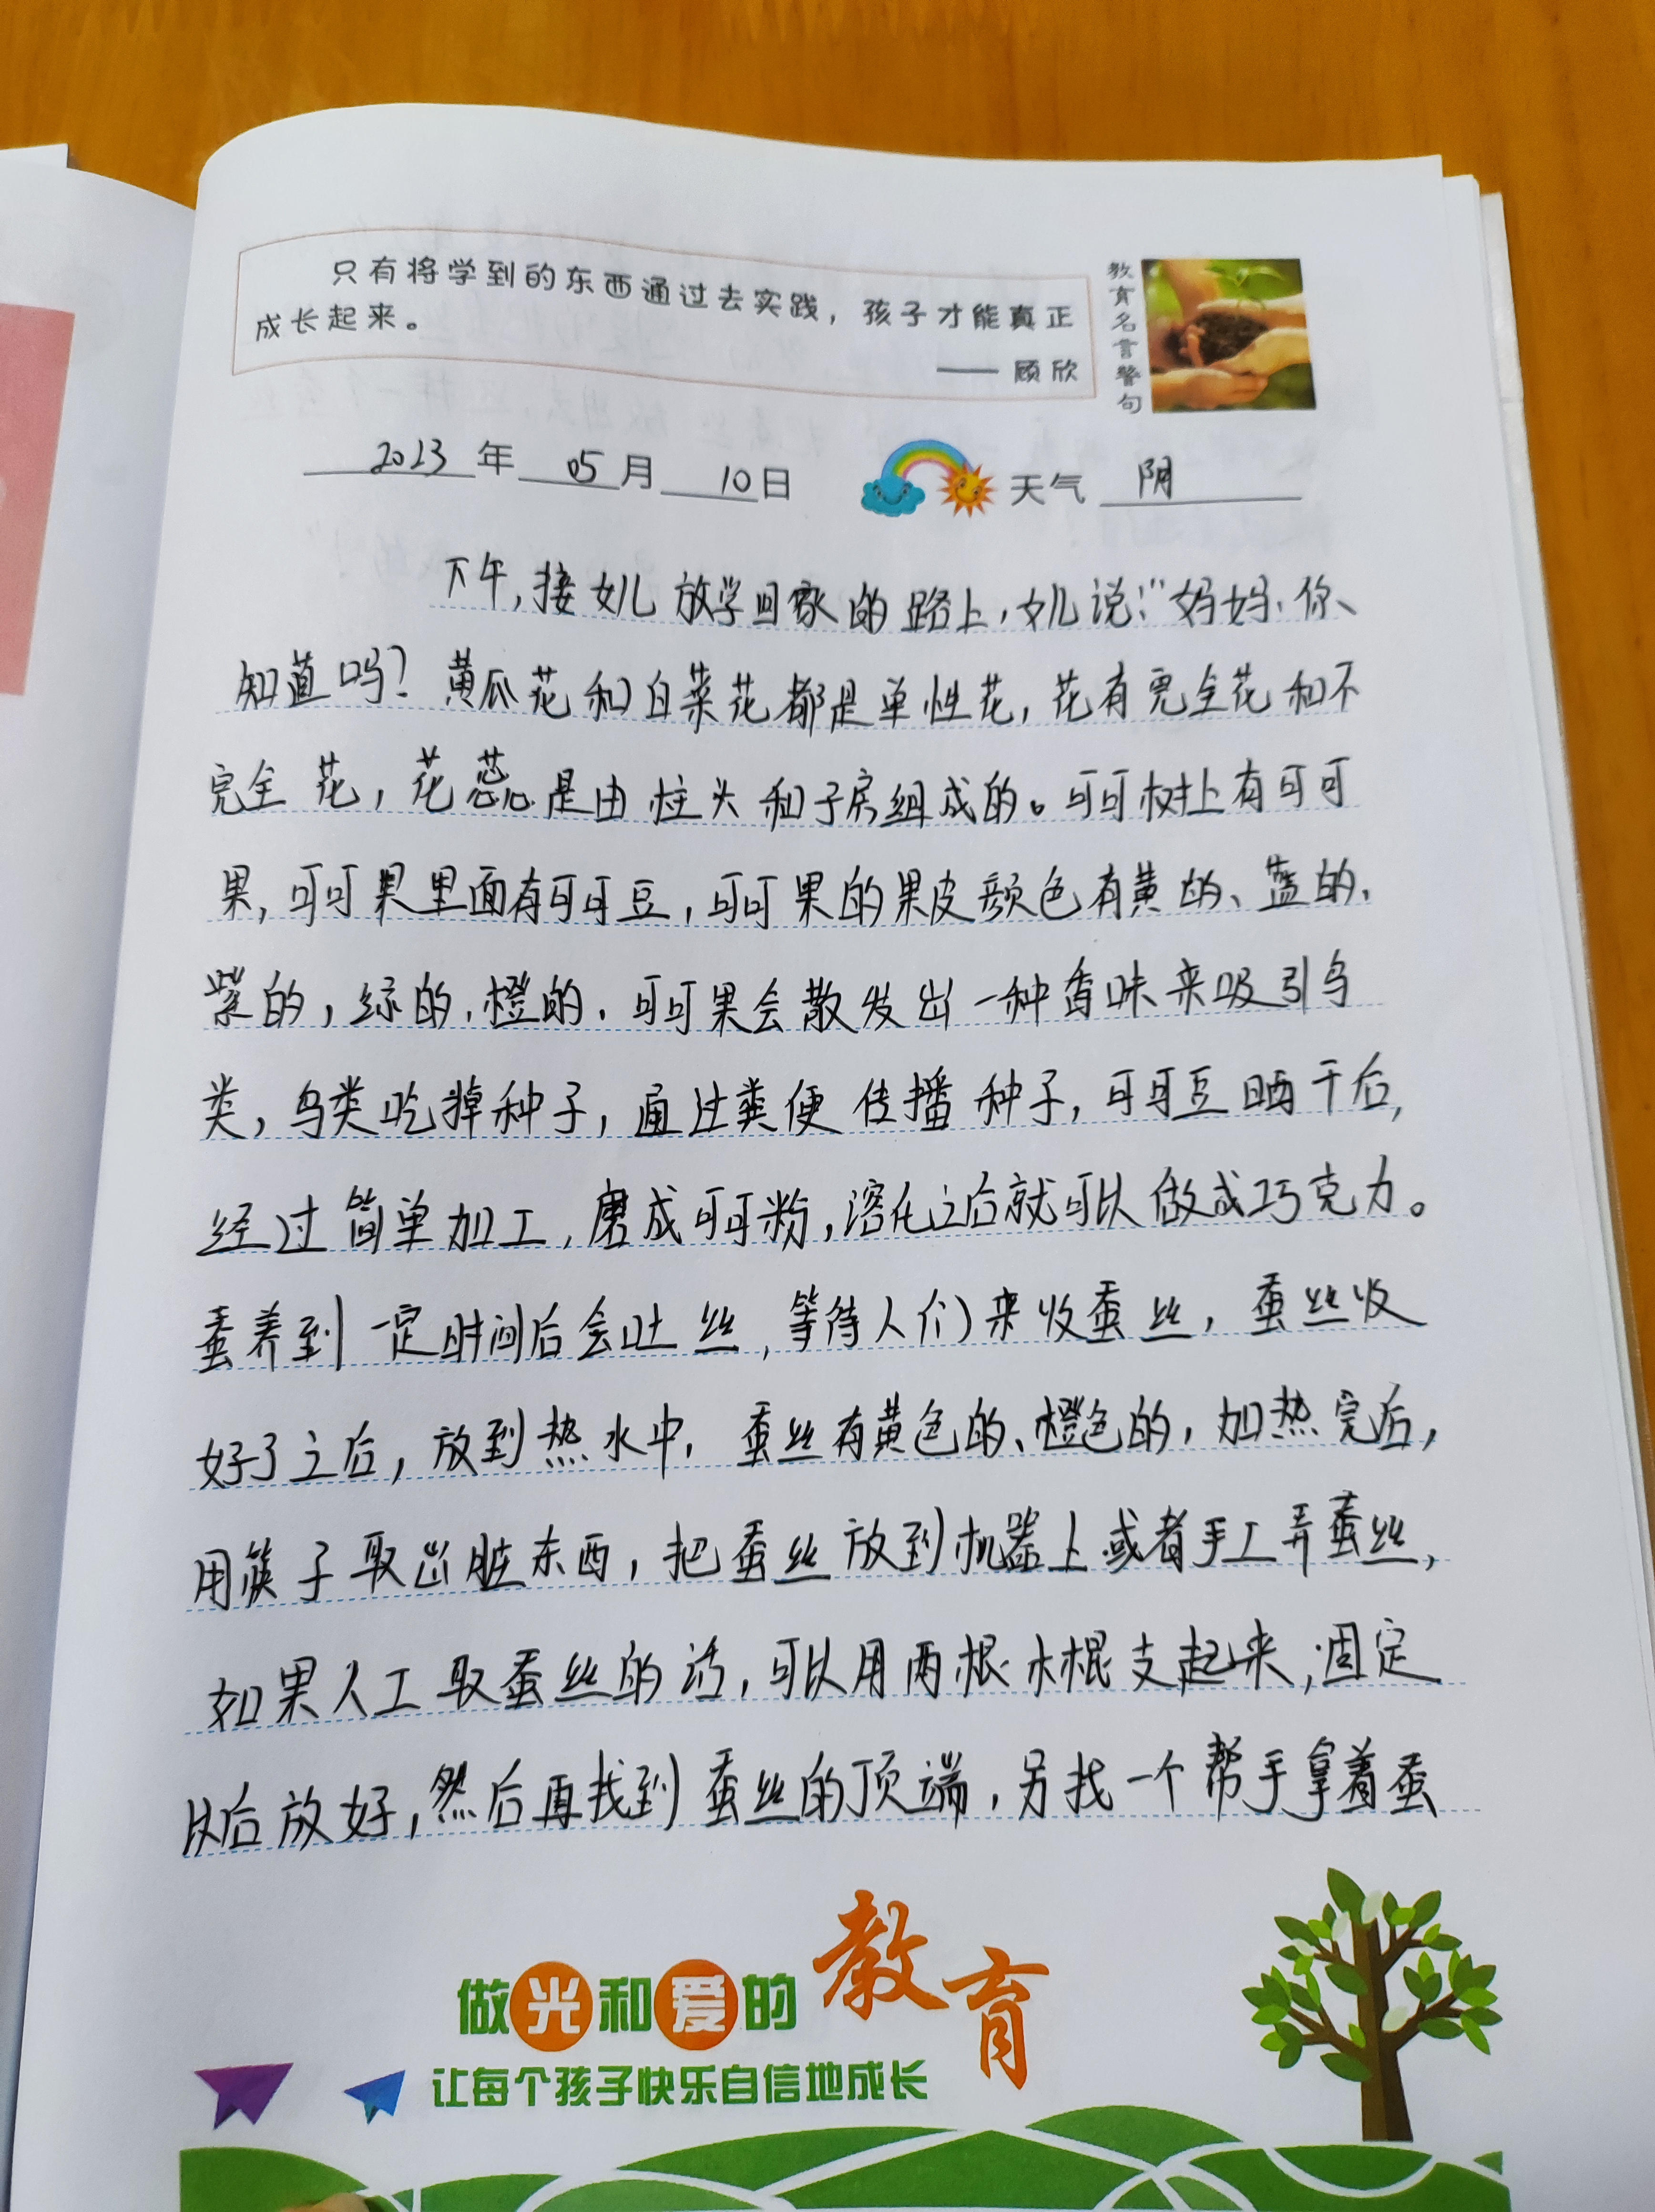 只有将学到的东西通过去实践，孩子才能真正
成长起来。
—— 顾欣
教育名言警句
2023年05月10日 天气 阴
下午，接女儿放学回家的路上，女儿说："妈妈、你、
知道吗？黄瓜花和白菜花都是单性花，花有完全花和不
完全花，花蕊是由柱头和子房组成的。可可树上有可可
果，可可果里面有可可豆，可可果的果皮颜色有黄的、蓝的、
紫的，绿的、橙的、可可果会散发出一种香味来吸引鸟
类，鸟类吃掉种子，通过粪便传播种子，可可豆晒干后，
经过简单加工，磨成可可粉，溶化之后就可以做成巧克力。
蚕养到一定时间后会吐丝，等待人们来收蚕丝，蚕丝收
好了之后，放到热水中，蚕丝有黄色的、橙色的，加热完后，
用筷子取出脏东西，把蚕丝放到机器上或者手工弄蚕丝，
如果人工取蚕丝的话，可以用两根木棍支起来，固定
以后放好，然后再找到蚕丝的顶端，另找一个帮手拿着蚕
做光和爱的教育
让每个孩子快乐自信地成长